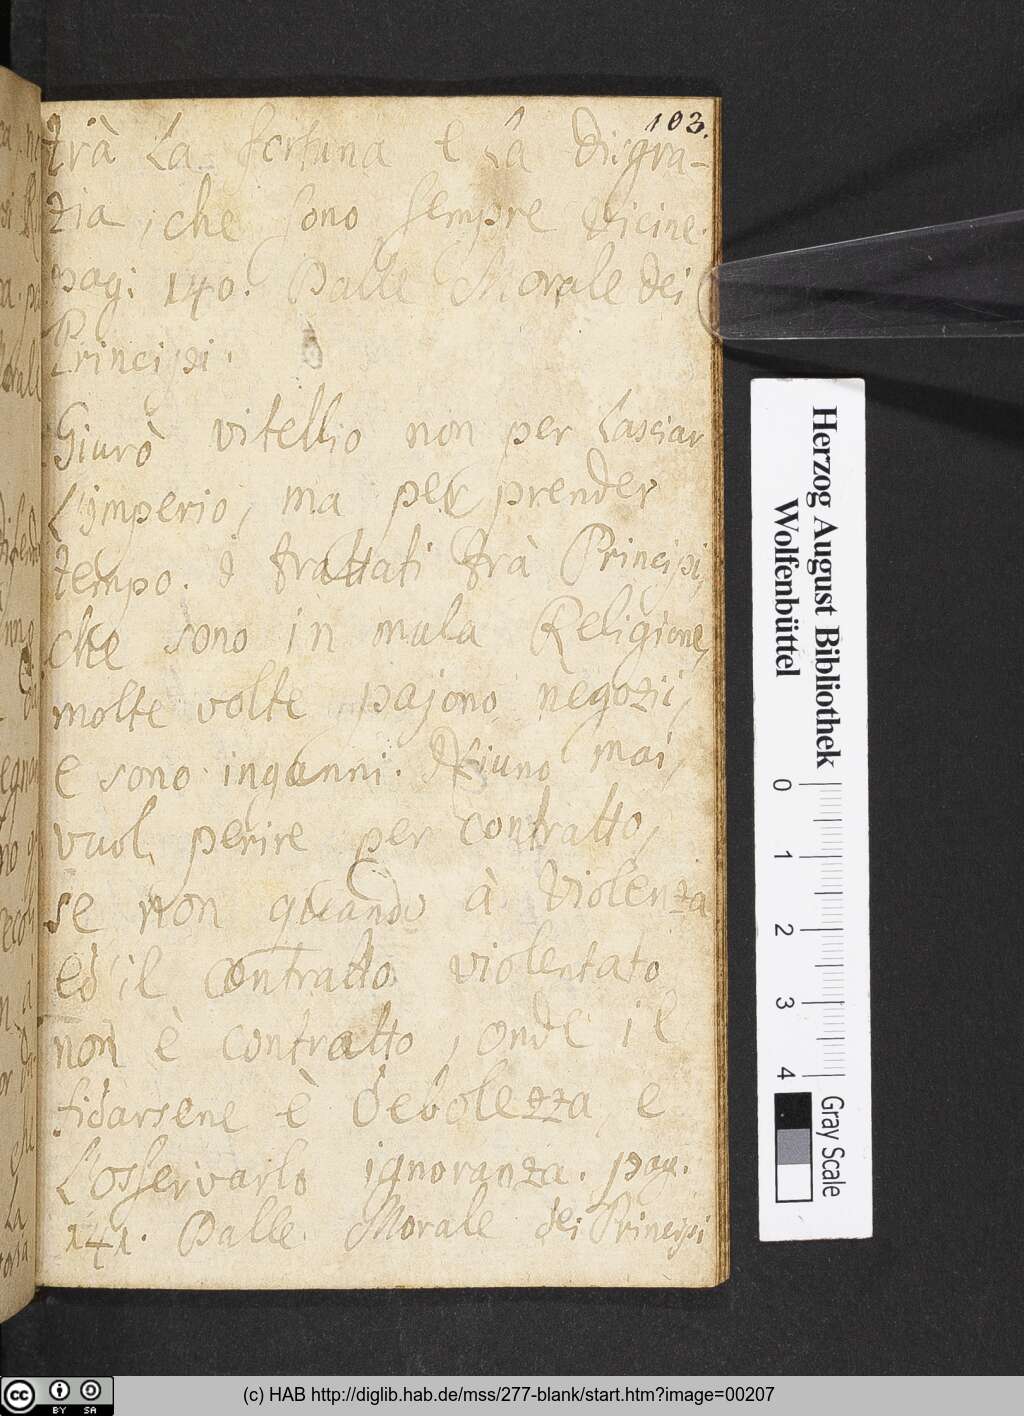 103.
trà La fortuna e La disgra-
zia, che sono sempre vicine.
pagi 140. Dalle Morale dei
Principi.
Giurò vitellio non per lasciar
L'imperio, ma per prender
tempo. I trattati frà Principi,
che sono in mala Religione,
molte volte pajono negozii,
e sono inganni. Niuno mai,
vuol perire per contratto,
se non quando à violenza
ed il contratto violentato
non è contratto, onde il
fidarsene è debolezza e
L'osservarlo ignoranza. pag.
141. Dalle Morale dei Principi
Herzog August Bibliothek
Wolfenbüttel
0 1 2 3 4
Gray Scale
cc BY SA
(c) HAB http://diglib.hab.de/mss/277-blank/start.htm?image=00207